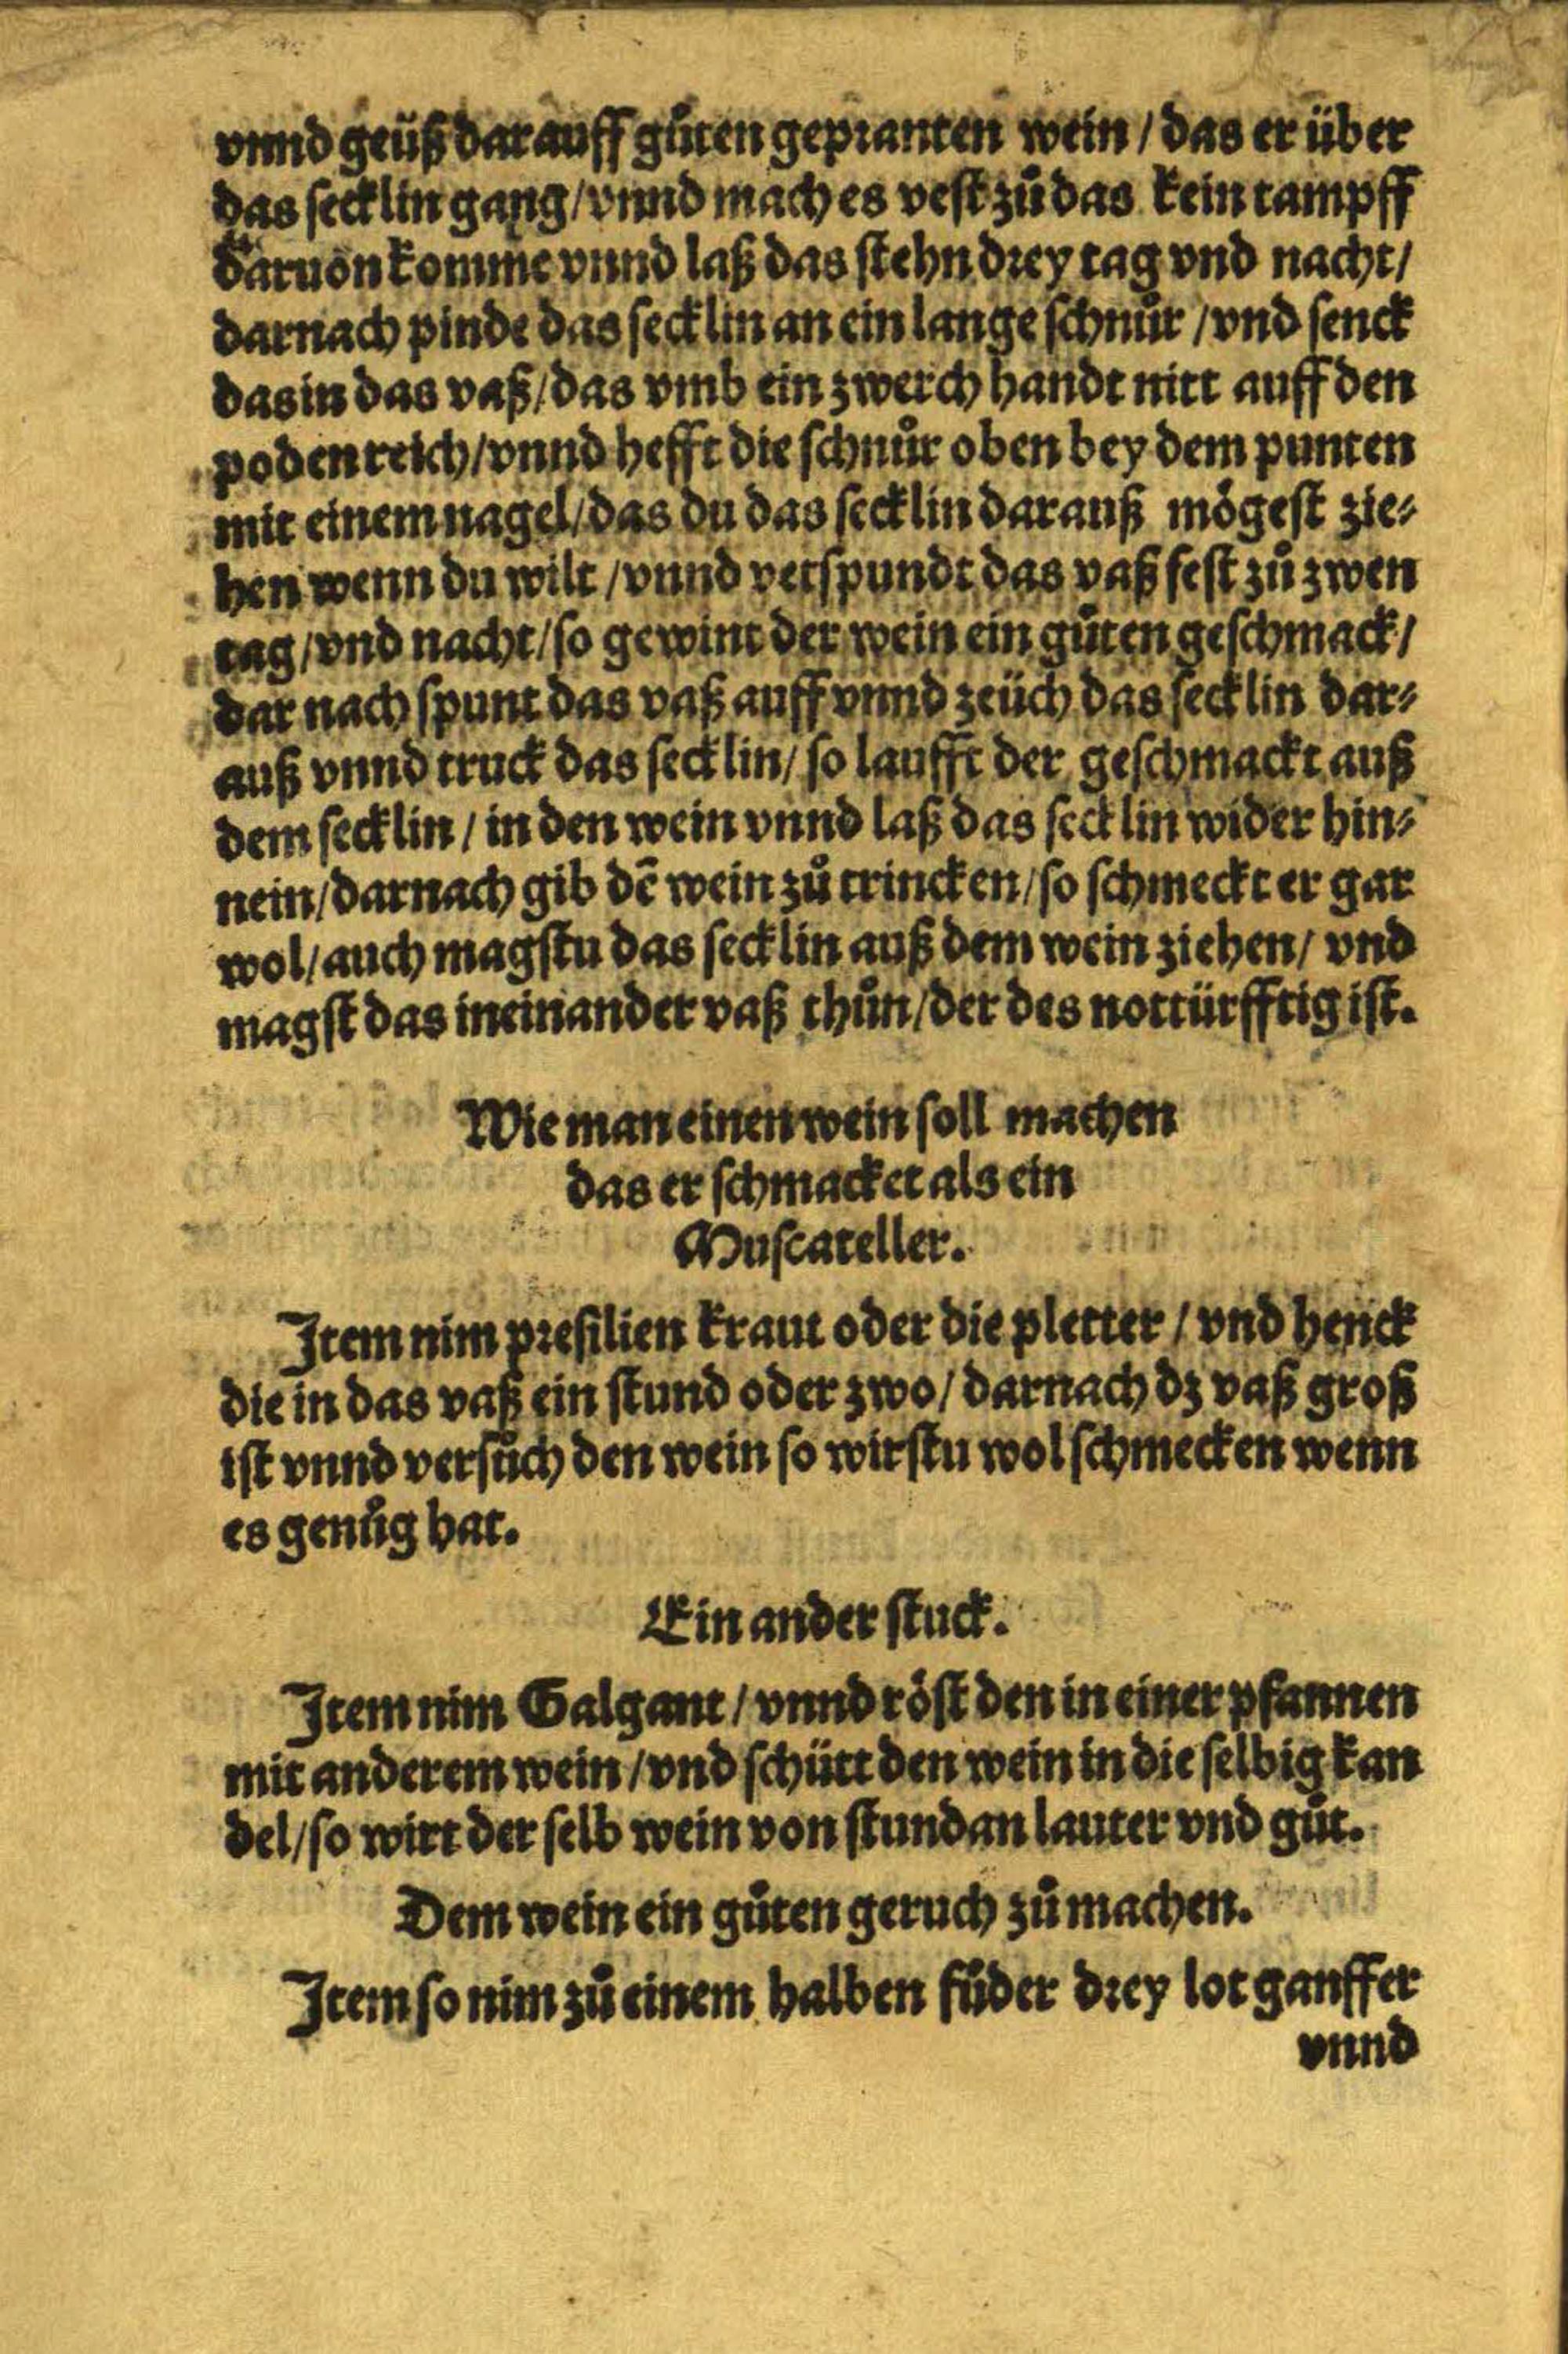 vnnd geüß darauff gůten gepranten wein / das er über
das secklin gang / vnnd mach es vest zů das kein tampff
daruon komme vnnd laß das stehn drey tag vnd nacht /
darnach pinde das secklin an ein lange schnůr / vnd senck
das in das vaß / das vmb ein zwerch handt nitt auff den
poden reich / vnnd hefft die schnůr oben bey dem punten
mit einem nagel / das du das secklin darauß mögest zie⸗
hen wenn du wilt / vnnd verspundt das vaß fest zů zwen
tag / vnd nacht / so gewint der wein ein gůten geschmack /
dar nach spunt das vaß auff vnnd zeüch das secklin dar⸗
auß vnnd truck das secklin / so laufft der geschmackt auß
dem secklin / in den wein vnnd laß das secklin wider hin⸗
nein / darnach gib dē wein zů trincken / so schmeckt er gar
wol / auch magstu das secklin auß dem wein ziehen / vnd
magst das in ein ander vaß thůn / der des nottürfftig ist.
Wie man einen wein soll machen
das er schmacket als ein
Muscateller.
Item nim presilien kraut oder die pletter / vnd henck
die in das vaß ein stund oder zwo / darnach dz vaß groß
ist vnnd versůch den wein so wirstu wol schmecken wenn
es genůg hat.
Ein ander stuck.
Item nim Galgant / vnnd röst den in einer pfannen
mit anderem wein / vnd schütt den wein in die selbig kan
del / so wirt der selb wein von stundan lauter vnd gůt.
Dem wein ein gůten geruch zů machen.
Item so nim zů einem halben fůder drey lot ganffer
vnnd